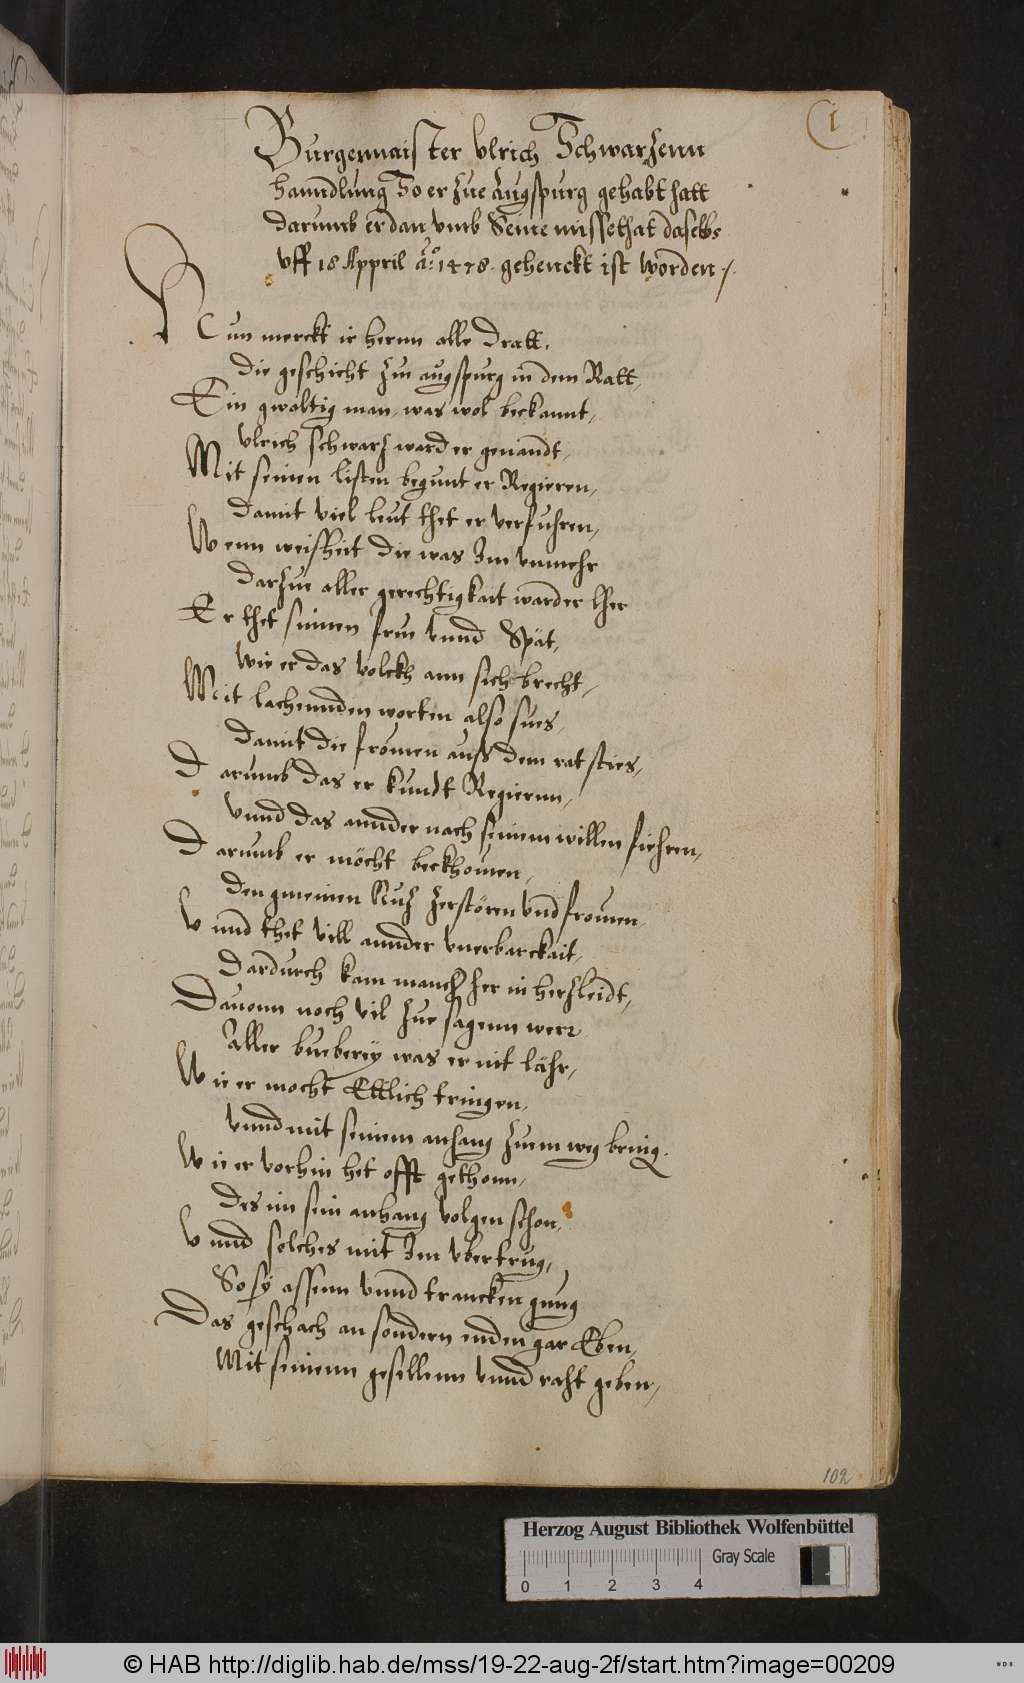 1
Burgermaister Ulrich Schwarzenn
hanndlung So er zue Augspurg gehabt hatt
darumb er dan umb Seine missethat daselbs
uff 18 Appril Aō: 1478. gehenckt ist worden ·/·
Nun merckt ir herrn alle dratt,
die geschicht zu augspurg in dem Ratt,
Ein gwaltig man, was wol beckannt,
Ulrich schwarz ward er genandt,
Mit seinen listen begunt er Regieren,
damit viel leut thet er verfuhren,
Wenn weisheit die was Im unmehr
darzue aller gerechtigkait warder lher
Er thet sinnen frue unnd Spät,
wie er das volckh ann sich brecht,
Mit lachennden worten also sues,
damit die fromen auß dem rat sties,
Darumb das er kundt Regiernn,
unnd das annder nach seinem willen fiehren,
Darumb er möcht beckhomen,
den gmeinen Nuz zerstören und fromen
Unnd thet vill annder unerbarckait,
dardurch kam mancher in herzleidt,
Dauonn noch vil zue sagenn wer
Aller bueberey was er nit lähr,
Wie er mocht Ettlich tringen,
unnd mit seinem anhang zuem weg bring.
Wie er vorhin het offt gethonn,
des im sein anhang volgen schon,
Unnd solches mit Im ubertrug,
So sy assenn unnd trancken gnug
Das geschach an sondern enden gar Eben,
Mit seinenn gesellenn unnd raht geben,
102
Herzog August Bibliothek Wolfenbüttel
Gray Scale
0 1 2 3 4
© HAB http://diglib.hab.de/mss/19-22-aug-2f/start.htm?image=00209